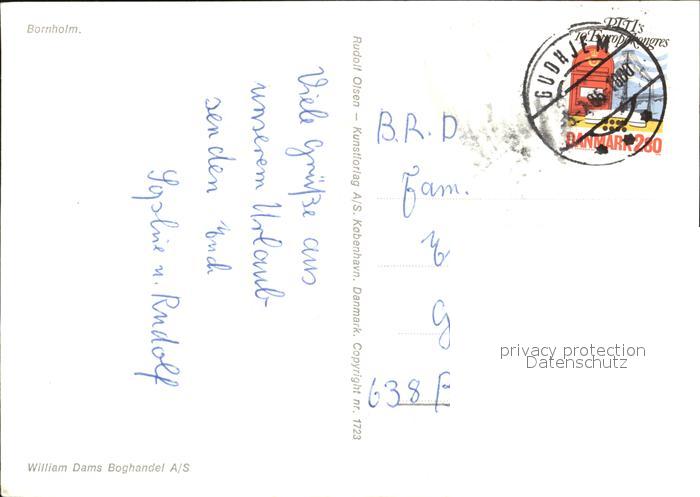 Bornholm.
Viele Grüße aus
unserem Urlaub
senden Euch
Sophie u. Rudolf
William Dams Boghandel A/S
Rudolf Olsen — Kunstforlag A/S. København. Danmark. Copyright nr. 1723
PTTI's
16. Europakongres
GUDHJEM
DANMARK 280
B.R.D
Fam.
G
638
privacy protection
Datenschutz